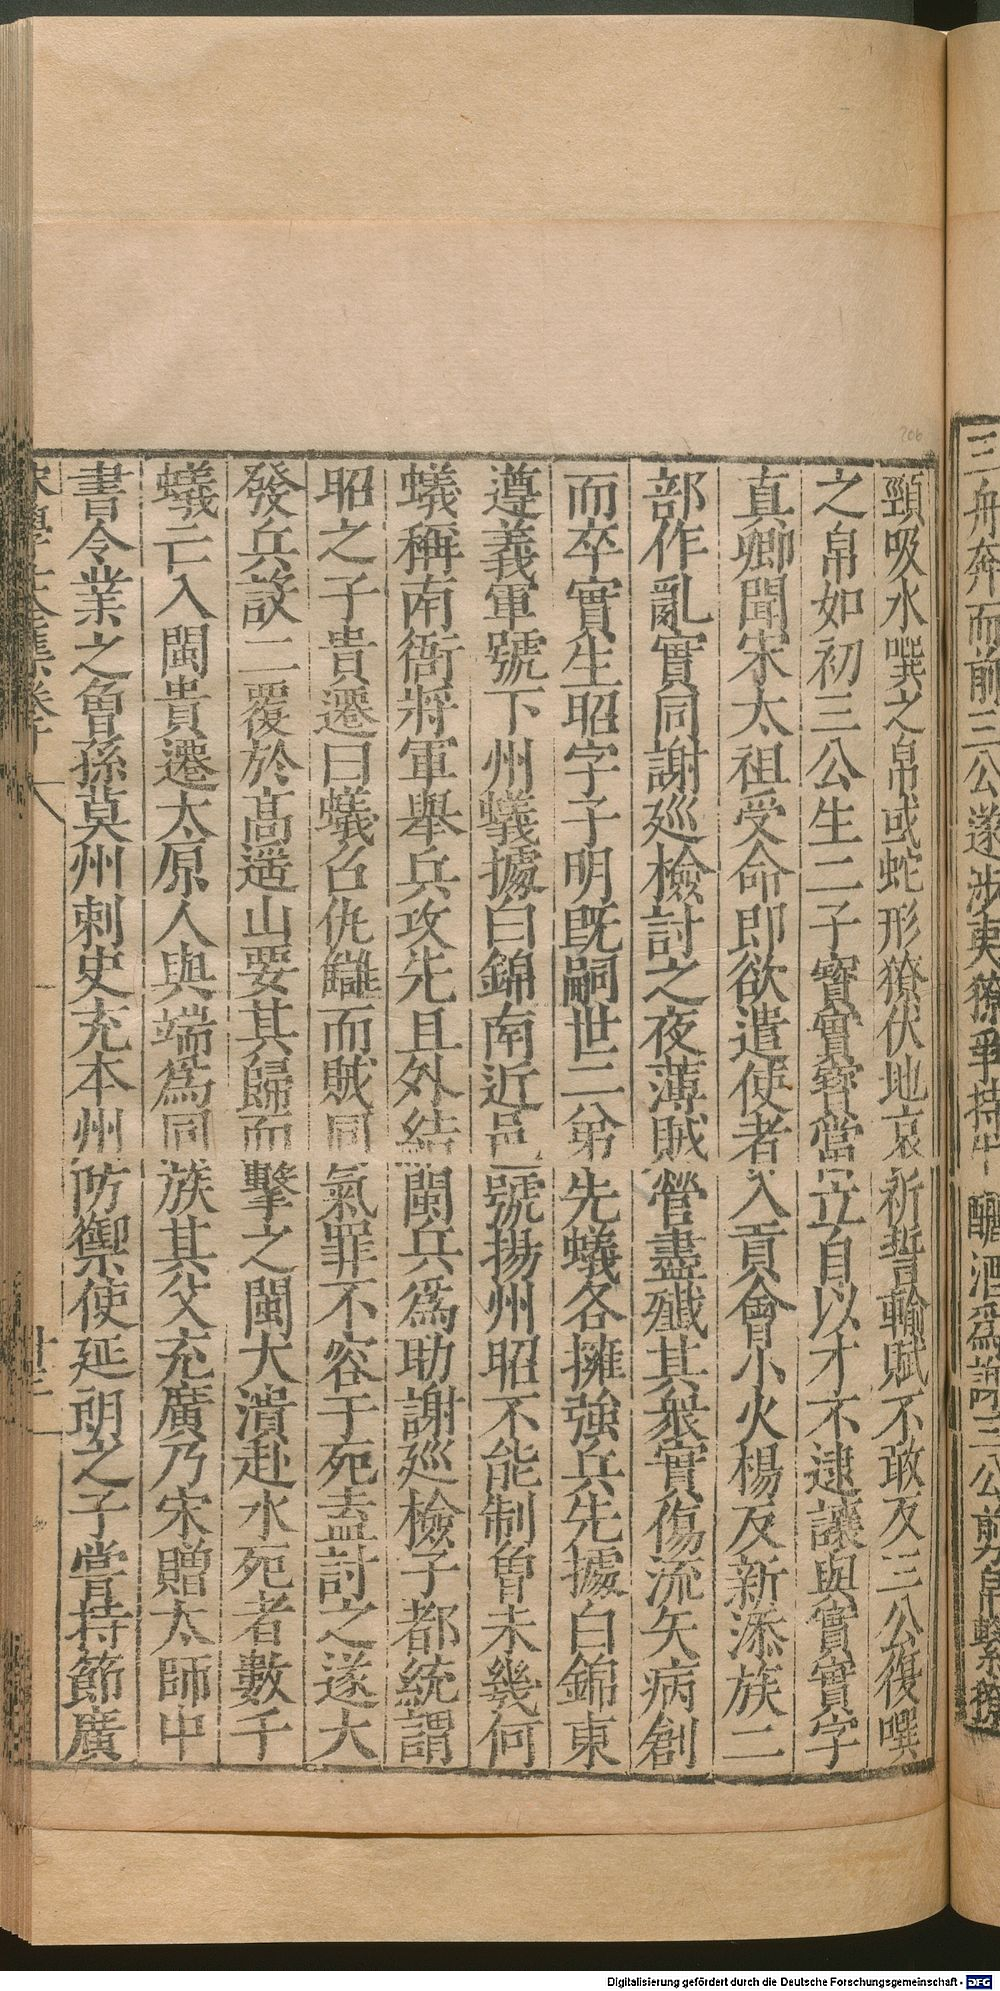 三舟奔而前三公遂涉夷獠爭持牛釃酒爲謝三公剪帛繫獠
頸吸水噀之帛或蛇形獠伏地哀祈誓輸賦不敢反三公復噀
之帛如初三公生二子寶實寶當立自以才不逮讓與實實字
真卿聞宋太祖受命即欲遣使者入貢會小火楊反新添族二
部作亂實同謝巡檢討之夜薄賊營盡殲其衆實傷流矢病創
而卒實生昭字子明旣嗣世二弟先蟻各擁強兵先據白錦東
遵義軍號下州蟻據白錦南近邑號揚州昭不能制曾未幾何
蟻稱南衙將軍舉兵攻先且外結閩兵爲助謝巡檢子都統謂
昭之子貴遷曰蟻召仇讎而賊同氣罪不容于死盍討之遂大
發兵設二覆於高遥山要其歸而擊之閩大潰赴水死者數千
蟻亡入閩貴遷太原人與端爲同族其父充廣乃宋贈太師中
書令業之曾孫莫州刺史充本州防禦使延朗之子嘗持節廣
宋學士全集卷十八
廿三
206
Digitalisierung gefördert durch die Deutsche Forschungsgemeinschaft - DFG